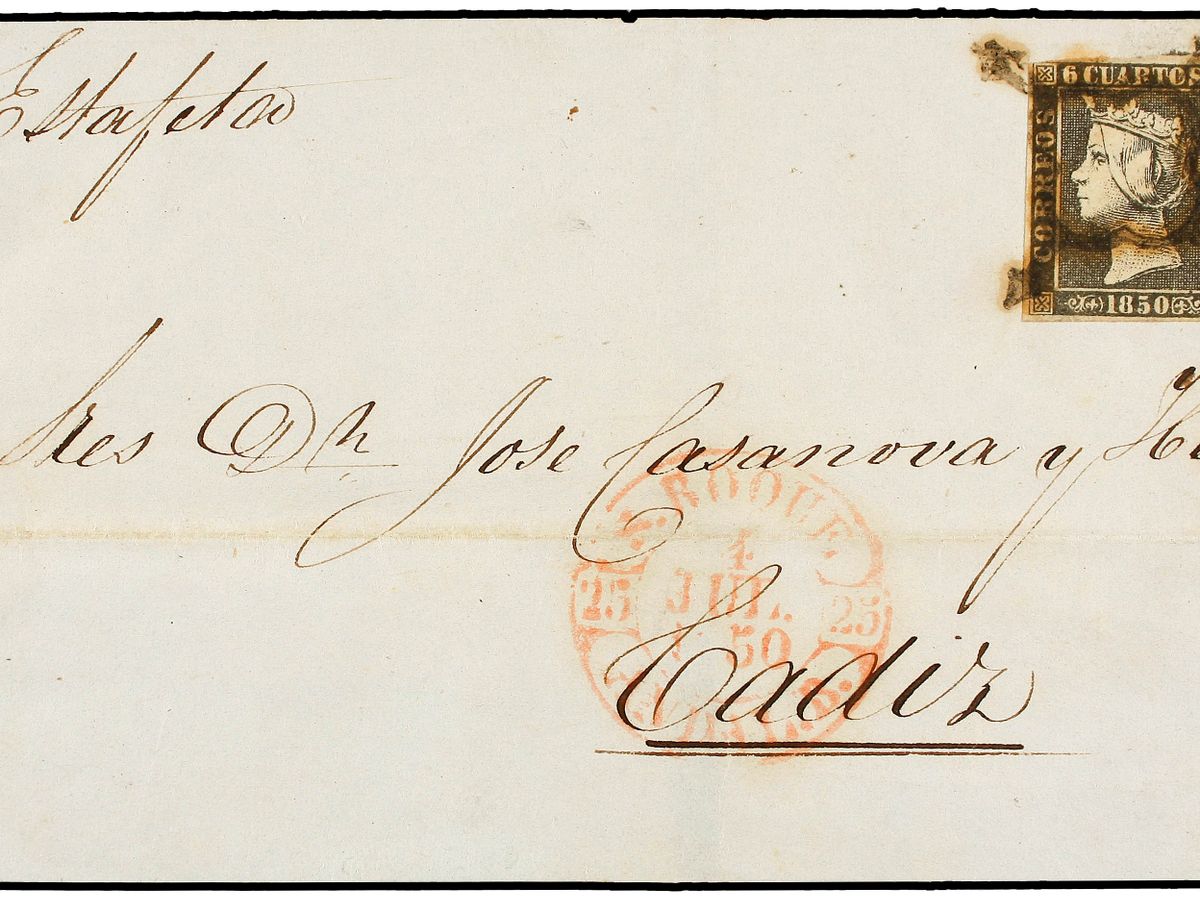 Estafeta
6 CUARTOS
CORREOS
1850
Sres Dn Jose Casanova y
S. ROQUE.
4
JUL.
50
25 25
Cadiz